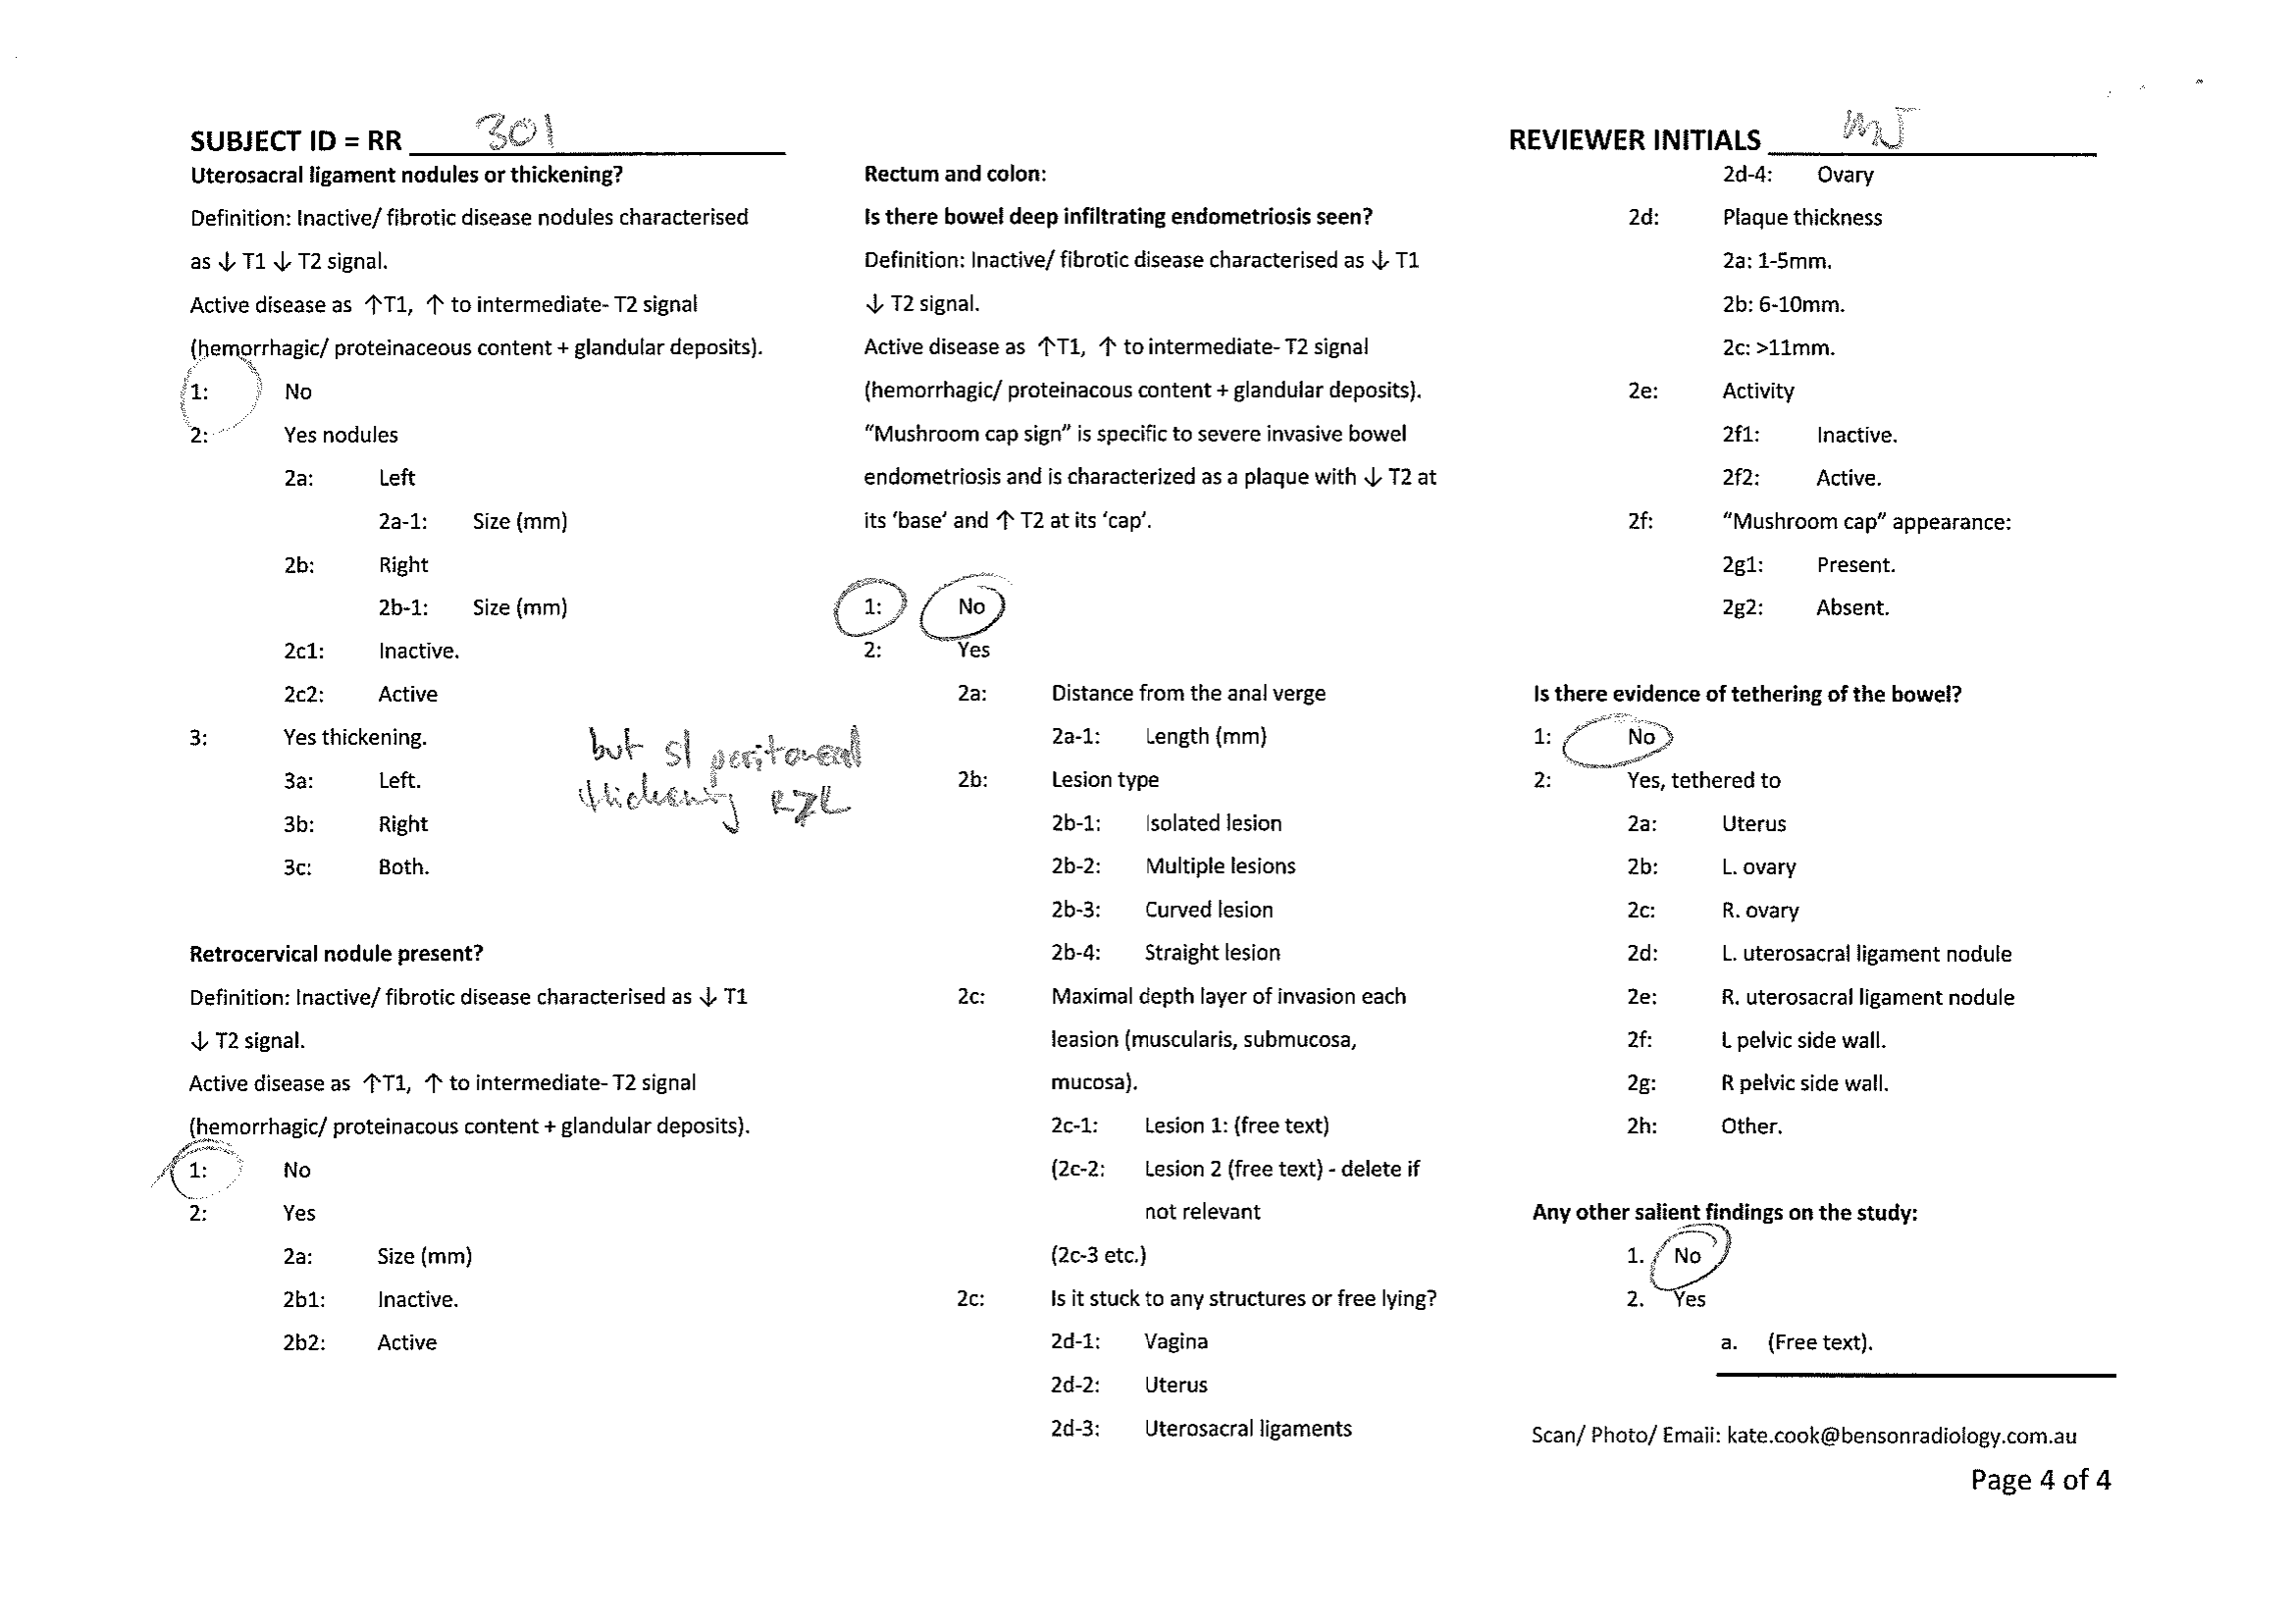 SUBJECT ID = RR 301
Uterosacral ligament nodules or thickening?
Definition: Inactive/ fibrotic disease nodules characterised
as ↓ T1 ↓ T2 signal.
Active disease as ↑T1, ↑ to intermediate- T2 signal
(hemorrhagic/ proteinaceous content + glandular deposits).
1: No
2: Yes nodules
2a: Left
2a-1: Size (mm)
2b: Right
2b-1: Size (mm)
2c1: Inactive.
2c2: Active
3: Yes thickening.
3a: Left.
3b: Right
3c: Both.
but sl peritoneal
thickening R>L
Retrocervical nodule present?
Definition: Inactive/ fibrotic disease characterised as ↓ T1
↓ T2 signal.
Active disease as ↑T1, ↑ to intermediate- T2 signal
(hemorrhagic/ proteinacous content + glandular deposits).
1: No
2: Yes
2a: Size (mm)
2b1: Inactive.
2b2: Active
Rectum and colon:
Is there bowel deep infiltrating endometriosis seen?
Definition: Inactive/ fibrotic disease characterised as ↓ T1
↓ T2 signal.
Active disease as ↑T1, ↑ to intermediate- T2 signal
(hemorrhagic/ proteinacous content + glandular deposits).
“Mushroom cap sign” is specific to severe invasive bowel
endometriosis and is characterized as a plaque with ↓ T2 at
its ‘base’ and ↑ T2 at its ‘cap’.
1: No
2: Yes
2a: Distance from the anal verge
2a-1: Length (mm)
2b: Lesion type
2b-1: Isolated lesion
2b-2: Multiple lesions
2b-3: Curved lesion
2b-4: Straight lesion
2c: Maximal depth layer of invasion each
leasion (muscularis, submucosa,
mucosa).
2c-1: Lesion 1: (free text)
(2c-2: Lesion 2 (free text) - delete if
not relevant
(2c-3 etc.)
2c: Is it stuck to any structures or free lying?
2d-1: Vagina
2d-2: Uterus
2d-3: Uterosacral ligaments
REVIEWER INITIALS
2d-4: Ovary
2d: Plaque thickness
2a: 1-5mm.
2b: 6-10mm.
2c: >11mm.
2e: Activity
2f1: Inactive.
2f2: Active.
2f: “Mushroom cap” appearance:
2g1: Present.
2g2: Absent.
Is there evidence of tethering of the bowel?
1: No
2: Yes, tethered to
2a: Uterus
2b: L. ovary
2c: R. ovary
2d: L. uterosacral ligament nodule
2e: R. uterosacral ligament nodule
2f: L pelvic side wall.
2g: R pelvic side wall.
2h: Other.
Any other salient findings on the study:
1. No
2. Yes
a. (Free text).
Scan/ Photo/ Email: kate.cook@bensonradiology.com.au
Page 4 of 4